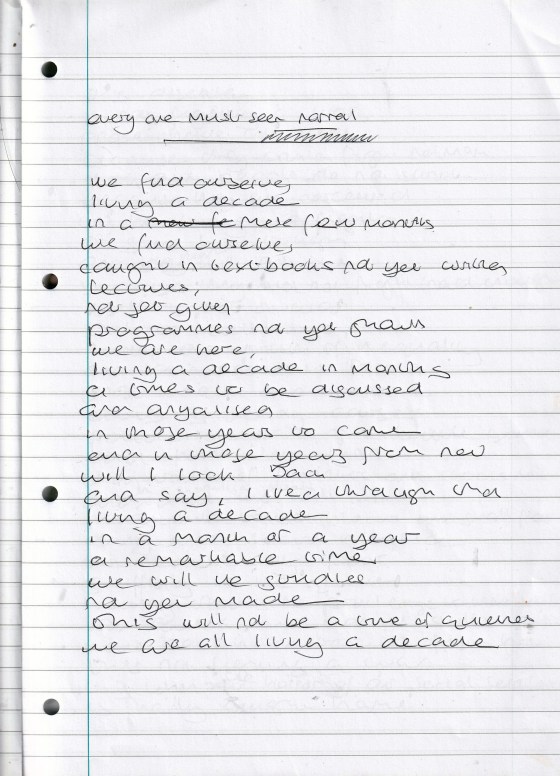 every one must seen normal
we find ourselves
living a decade
in a mere few months
we find ourselves
caught in textbooks not yet written
lectures,
not yet given
programmes not yet shown
we are here,
living a decade in months
a times to be discussed
and anyalised
in those years to come
and in those years from now
will I look back
and say, I lived through that
living a decade
in a march of a year
a remarkable time,
we will be
not yet made
this will not be a time of quietness
we are all living a decade